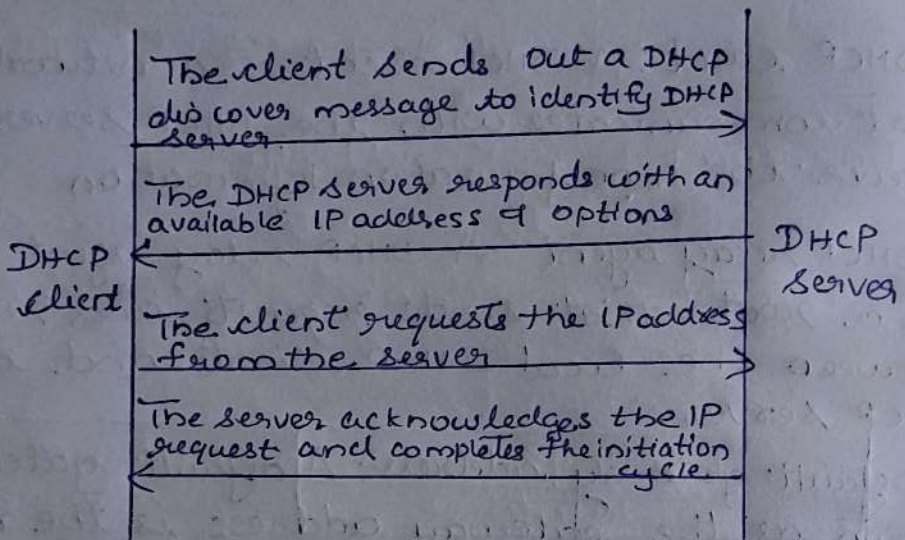 The client sends out a DHCP
discover message to identify DHCP
server.
The DHCP server responds with an
available IP address & options
DHCP
client
DHCP
server
The client requests the IP address
from the server
The server acknowledges the IP
request and completes the initiation
cycle.